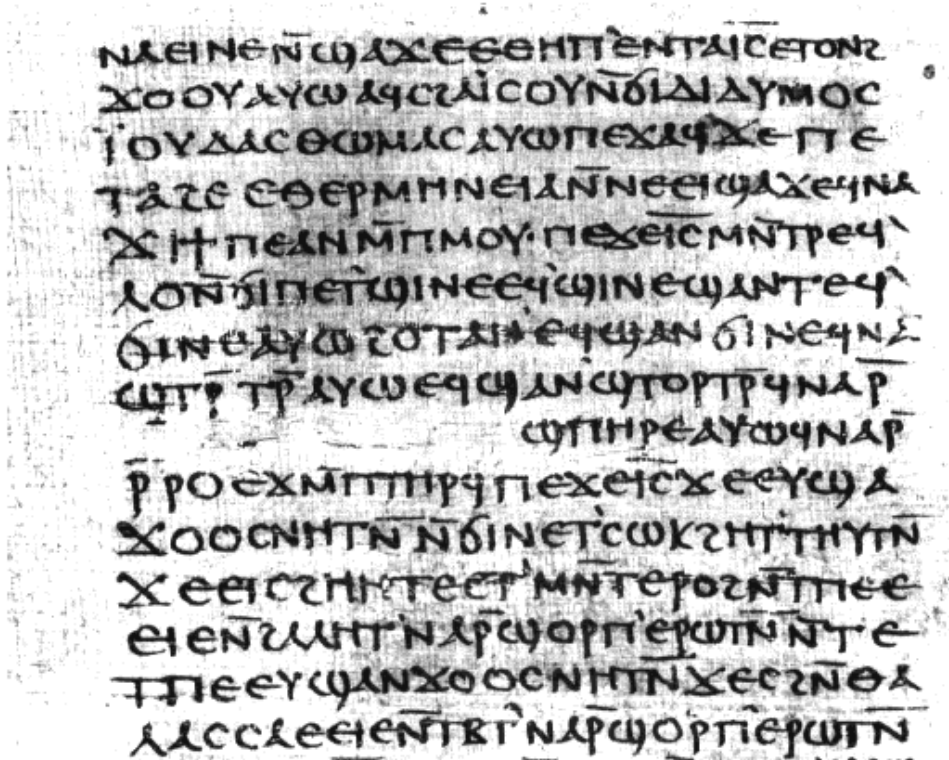 ⲛⲁⲉⲓ ⲛⲉ ⲛ̄ϣⲁϫⲉ ⲉⲑⲏⲡ' ⲉⲛⲧⲁⲓ̅ⲥ̅ ⲉⲧⲟⲛϩ
ϫⲟⲟⲩ ⲁⲩⲱ ⲁϥⲥϩⲁⲓ̈ⲥⲟⲩ ⲛ̄ϭⲓ ⲇⲓⲇⲩⲙⲟⲥ
ⲓ̈ⲟⲩⲇⲁⲥ ⲑⲱⲙⲁⲥ ⲁⲩⲱ ⲡⲉϫⲁϥ ϫⲉ ⲡⲉ
ⲧⲁϩⲉ ⲉⲑⲉⲣⲙⲏⲛⲉⲓⲁ ⲛ̄ⲛⲉⲉⲓϣⲁϫⲉ ϥⲛⲁ
ϫⲓ ϯⲡⲉ ⲁⲛ ⲙ̄ⲡⲙⲟⲩ· ⲡⲉϫⲉ ⲓ̅ⲥ̅ ⲙⲛ̄ⲧⲣⲉϥ'
ⲗⲟ ⲛ̄ϭⲓ ⲡⲉⲧ'ϣⲓⲛⲉ ⲉϥ'ϣⲓⲛⲉ ϣⲁⲛⲧⲉϥ'
ϭⲓⲛⲉ ⲁⲩⲱ ϩⲟⲧⲁⲛ' ⲉϥϣⲁⲛϭⲓⲛⲉ ϥⲛⲁ
ϣⲧⲣ̄ⲧⲣ̄ ⲁⲩⲱ ⲉϥϣⲁⲛϣⲧⲟⲣⲧⲣ̄ ϥⲛⲁⲣ̄
ϣⲡⲏⲣⲉ ⲁⲩⲱ ϥⲛⲁⲣ̄
ⲣ̄ⲣⲟ ⲉϫⲙ̄ ⲡⲧⲏⲣϥ ⲡⲉϫⲉ ⲓ̅ⲥ̅ ϫⲉ ⲉⲩϣⲁ
ϫⲟⲟⲥ ⲛⲏⲧⲛ̄ ⲛ̄ϭⲓ ⲛⲉⲧ'ⲥⲱⲕ ϩⲏⲧ' ⲧⲏⲩⲧⲛ̄
ϫⲉ ⲉⲓⲥϩⲏⲏⲧⲉ ⲉⲧ'ⲙⲛ̄ⲧⲉⲣⲟ ϩⲛ̄ ⲧⲡⲉ ⲉ
ⲉⲓⲉ ⲛ̄ϩⲁⲗⲏⲧ' ⲛⲁⲣ̄ ϣⲟⲣⲡ' ⲉⲣⲱⲧⲛ̄ ⲛ̄ⲧⲉ
ⲧⲡⲉ ⲉⲩϣⲁⲛϫⲟⲟⲥ ⲛⲏⲧⲛ̄ ϫⲉ ⲥϩⲛ̄ ⲑⲁ
ⲗⲁⲥⲥⲁ ⲉⲉⲓⲉ ⲛ̄ⲧⲃⲧ' ⲛⲁⲣ̄ ϣⲟⲣⲡ' ⲉⲣⲱⲧⲛ̄